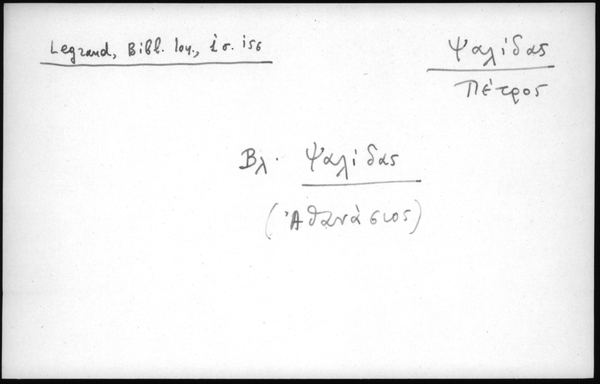 Legrand, Bibl. Ion., i σ. 156
Ψαλίδας
Πέτρος
Βλ. Ψαλίδας
(Ἀθανάσιος)